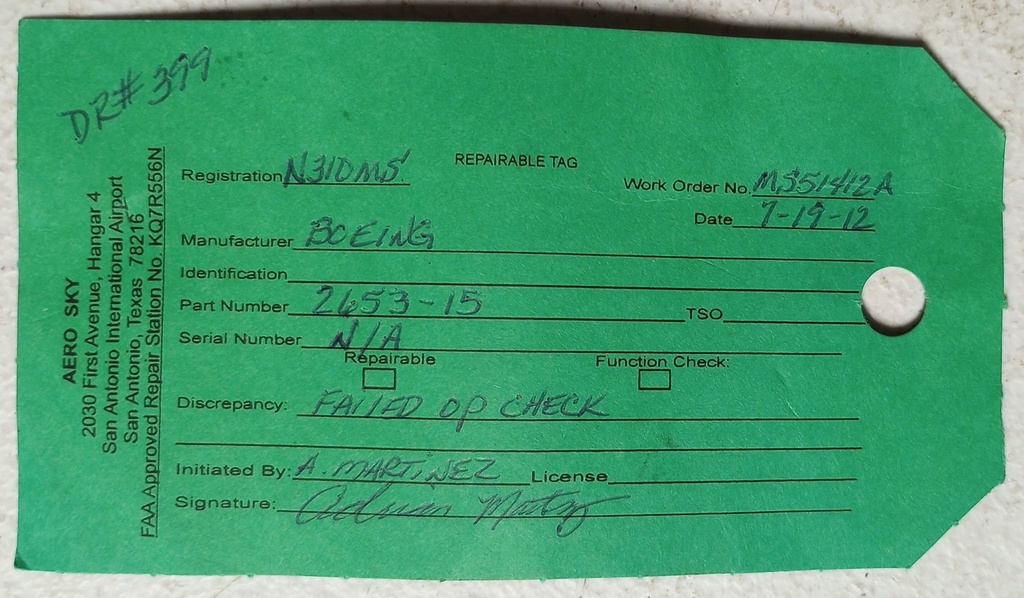 DR# 399
AERO SKY
2030 First Avenue, Hangar 4
San Antonio International Airport
San Antonio, Texas 78216
FAA Approved Repair Station No. KQ7R556N
REPAIRABLE TAG
Registration N310MS
Work Order No. MS51412A
Date 7-19-12
Manufacturer BOEING
Identification
Part Number 2653-15 TSO
Serial Number N/A
Repairable Function Check:
Discrepancy: FAILED OP CHECK
Initiated By: A. MARTINEZ License
Signature: Adrian